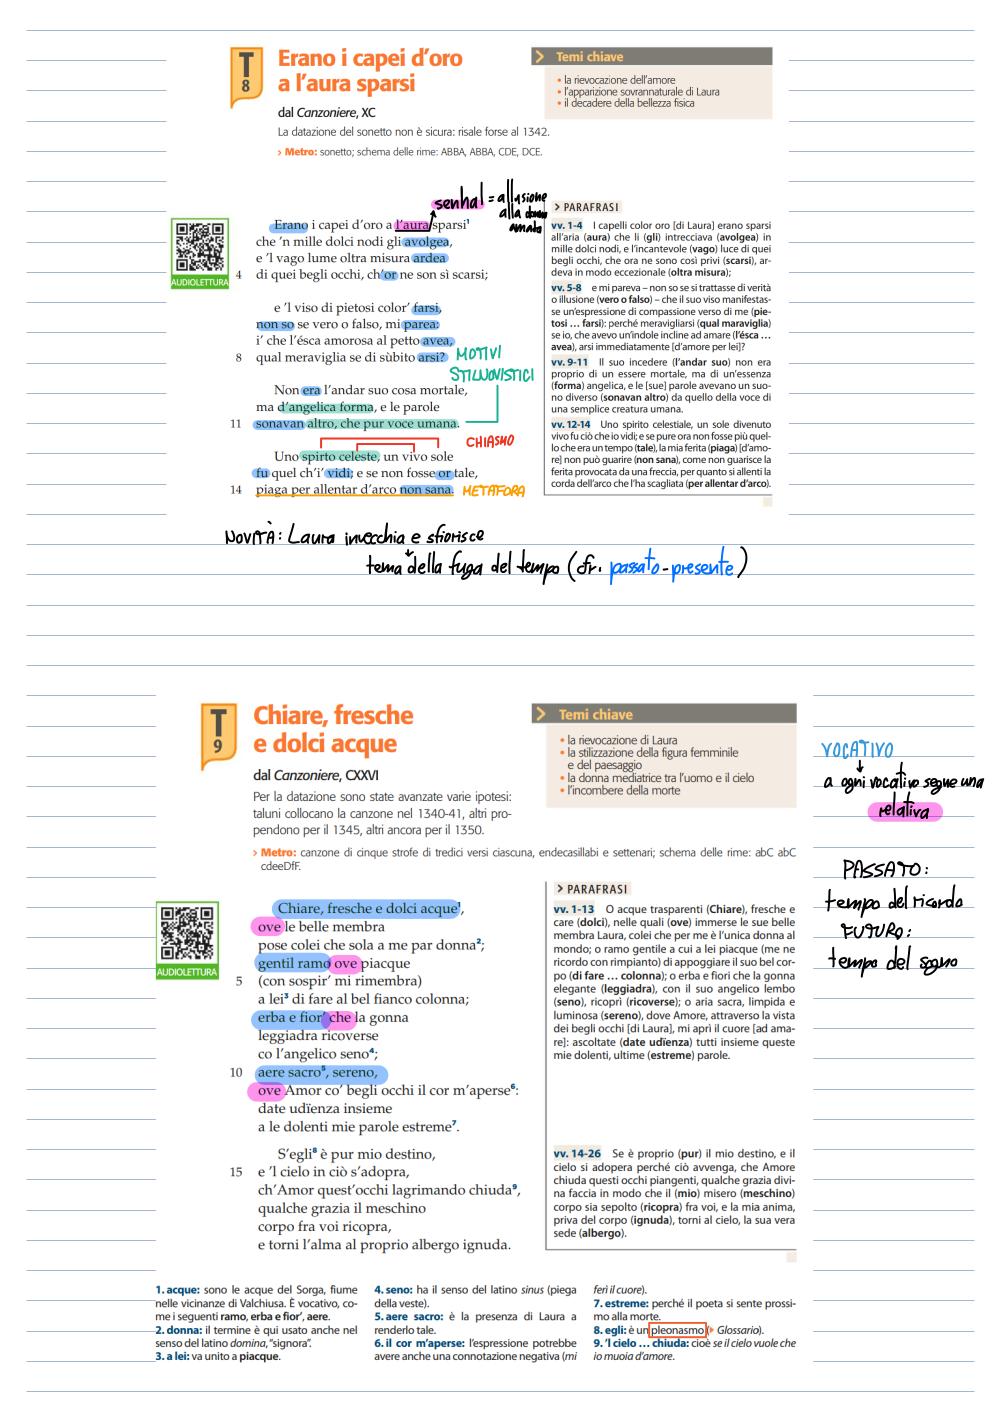 T
8
Erano i capei d'oro
a l'aura sparsi
dal Canzoniere, XC
La datazione del sonetto non è sicura: risale forse al 1342.
› Metro: sonetto; schema delle rime: ABBA, ABBA, CDE, DCE.
Temi chiave
• la rievocazione dell'amore
• l'apparizione sovrannaturale di Laura
• il decadere della bellezza fisica
senhal = allusione
alla donna
amata
AUDIOLETTURA
Erano i capei d'oro a l'aura sparsi¹
che 'n mille dolci nodi gli avolgea,
e 'l vago lume oltra misura ardea
4 di quei begli occhi, ch'or ne son sì scarsi;
e 'l viso di pietosi color' farsi,
non so se vero o falso, mi parea:
i' che l'ésca amorosa al petto avea,
8 qual meraviglia se di sùbito arsi?
MOTIVI
STILNOVISTICI
Non era l'andar suo cosa mortale,
ma d'angelica forma, e le parole
11 sonavan altro, che pur voce umana.
CHIASMO
Uno spirto celeste, un vivo sole
fu quel ch'i' vidi; e se non fosse or tale,
14 piaga per allentar d'arco non sana.
METAFORA
PARAFRASI
vv. 1-4 I capelli color oro [di Laura] erano sparsi
all'aria (aura) che li (gli) intrecciava (avolgea) in
mille dolci nodi, e l'incantevole (vago) luce di quei
begli occhi, che ora ne sono così privi (scarsi), ar-
deva in modo eccezionale (oltra misura);
vv. 5-8 e mi pareva – non so se si trattasse di verità
o illusione (vero o falso) – che il suo viso manifestas-
se un'espressione di compassione verso di me (pie-
tosi ... farsi): perché meravigliarsi (qual maraviglia)
se io, che avevo un'indole incline ad amare (l'ésca ...
avea), arsi immediatamente [d'amore per lei]?
vv. 9-11 Il suo incedere (l'andar suo) non era
proprio di un essere mortale, ma di un'essenza
(forma) angelica, e le [sue] parole avevano un suo-
no diverso (sonavan altro) da quello della voce di
una semplice creatura umana.
vv. 12-14 Uno spirito celestiale, un sole divenuto
vivo fu ciò che io vidi; e se pure ora non fosse più quel-
lo che era un tempo (tale), la mia ferita (piaga) [d'amo-
re] non può guarire (non sana), come non guarisce la
ferita provocata da una freccia, per quanto si allenti la
corda dell'arco che l'ha scagliata (per allentar d'arco).
NOVITÀ: Laura invecchia e sfiorisce
tema della fuga del tempo (cfr. passato-presente)
T
9
Chiare, fresche
e dolci acque
dal Canzoniere, CXXVI
Per la datazione sono state avanzate varie ipotesi:
taluni collocano la canzone nel 1340-41, altri pro-
pendono per il 1345, altri ancora per il 1350.
› Metro: canzone di cinque strofe di tredici versi ciascuna, endecasillabi e settenari; schema delle rime: abC abC
cdeeDfF.
Temi chiave
• la rievocazione di Laura
• la stilizzazione della figura femminile
e del paesaggio
• la donna mediatrice tra l'uomo e il cielo
• l'incombere della morte
VOCATIVO
a ogni vocativo segue una
relativa
PASSATO:
tempo del ricordo
FUTURO:
tempo del sogno
AUDIOLETTURA
Chiare, fresche e dolci acque¹,
ove le belle membra
pose colei che sola a me par donna²;
gentil ramo ove piacque
5 (con sospir' mi rimembra)
a lei³ di fare al bel fianco colonna;
erba e fior' che la gonna
leggiadra ricoverse
co l'angelico seno⁴;
10 aere sacro⁵, sereno,
ove Amor co' begli occhi il cor m'aperse⁶:
date udïenza insieme
a le dolenti mie parole estreme⁷.
S'egli⁸ è pur mio destino,
15 e 'l cielo in ciò s'adopra,
ch'Amor quest'occhi lagrimando chiuda⁹,
qualche grazia il meschino
corpo fra voi ricopra,
e torni l'alma al proprio albergo ignuda.
PARAFRASI
vv. 1-13 O acque trasparenti (Chiare), fresche e
care (dolci), nelle quali (ove) immerse le sue belle
membra Laura, colei che per me è l'unica donna al
mondo; o ramo gentile a cui a lei piacque (me ne
ricordo con rimpianto) di appoggiare il suo bel cor-
po (di fare ... colonna); o erba e fiori che la gonna
elegante (leggiadra), con il suo angelico lembo
(seno), ricoprì (ricoverse); o aria sacra, limpida e
luminosa (sereno), dove Amore, attraverso la vista
dei begli occhi [di Laura], mi aprì il cuore [ad ama-
re]: ascoltate (date udïenza) tutti insieme queste
mie dolenti, ultime (estreme) parole.
vv. 14-26 Se è proprio (pur) il mio destino, e il
cielo si adopera perché ciò avvenga, che Amore
chiuda questi occhi piangenti, qualche grazia divi-
na faccia in modo che il (mio) misero (meschino)
corpo sia sepolto (ricopra) fra voi, e la mia anima,
priva del corpo (ignuda), torni al cielo, la sua vera
sede (albergo).
1. acque: sono le acque del Sorga, fiume
nelle vicinanze di Valchiusa. È vocativo, co-
me i seguenti ramo, erba e fior', aere.
2. donna: il termine è qui usato anche nel
senso del latino domina, "signora".
3. a lei: va unito a piacque.
4. seno: ha il senso del latino sinus (piega
della veste).
5. aere sacro: è la presenza di Laura a
renderlo tale.
6. il cor m'aperse: l'espressione potrebbe
avere anche una connotazione negativa (mi
ferì il cuore).
7. estreme: perché il poeta si sente prossi-
mo alla morte.
8. egli: è un pleonasmo (▸ Glossario).
9. 'l cielo ... chiuda: cioè se il cielo vuole che
io muoia d'amore.